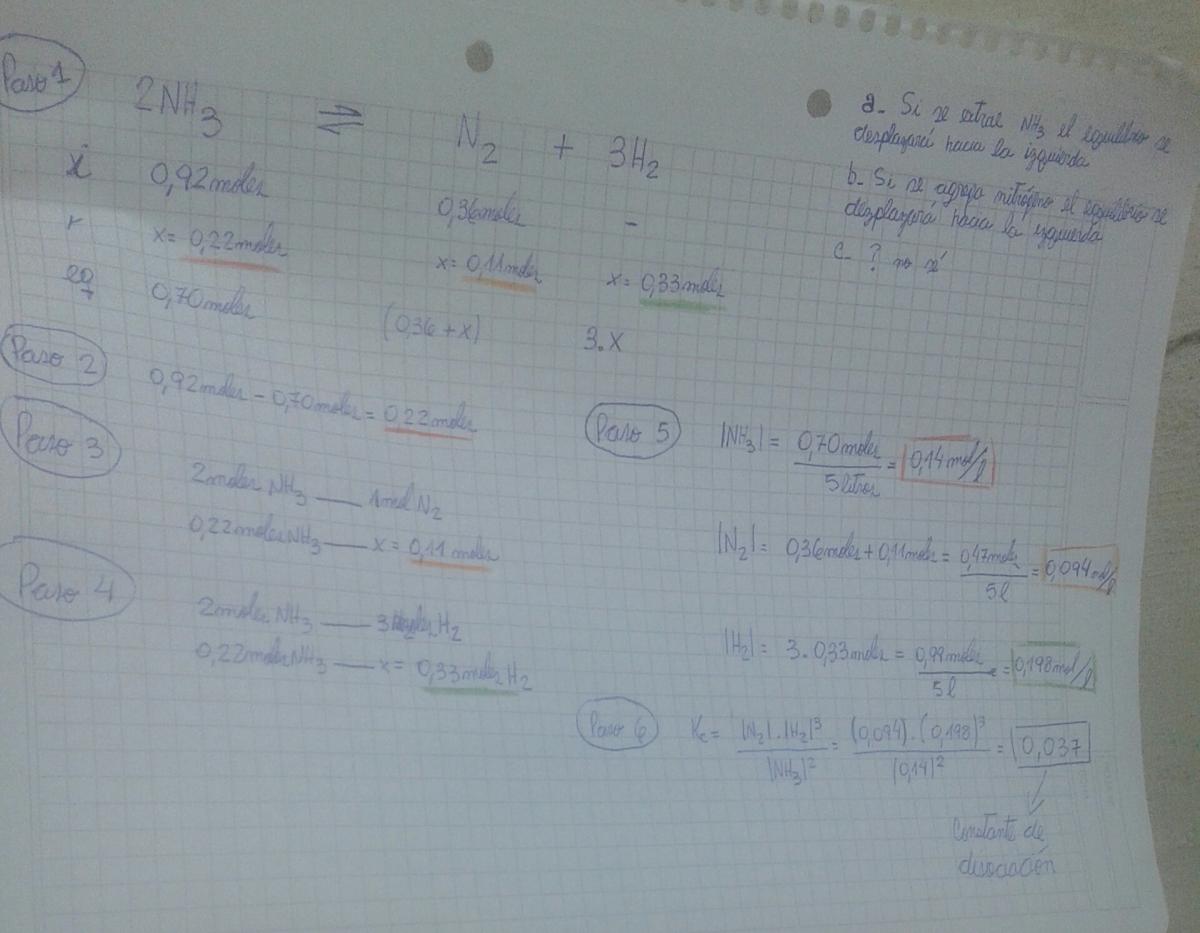 Paso 1
2NH3 ⇌ N2 + 3H2
i 0,92moles 0,36moles -
r x= 0,22moles x= 0,11moles x= 0,33moles
eq 0,70moles (0,36+x) 3.x
Paso 2
0,92moles - 0,70moles = 0,22moles
Paso 3
2moles NH3 — 1mol N2
0,22moles NH3 — x= 0,11 moles
Paso 4
2moles NH3 — 3moles H2
0,22moles NH3 — x= 0,33moles H2
a- Si se extrae NH3 el equilibrio se
desplazará hacia la izquierda
b- Si se agrega nitrógeno el equilibrio se
desplazará hacia la izquierda
c- ? no sé
Paso 5
|NH3| = 0,70moles / 5litros = 0,14mol/l
|N2| = 0,36moles + 0,11moles = 0,47moles / 5l = 0,094mol/l
|H2| = 3.0,33moles = 0,99moles / 5l = 0,198mol/l
Paso 6
Kc = |N2|.|H2|^3 / |NH3|^2 = (0,094).(0,198)^3 / (0,14)^2 = 0,037
Constante de
disociación